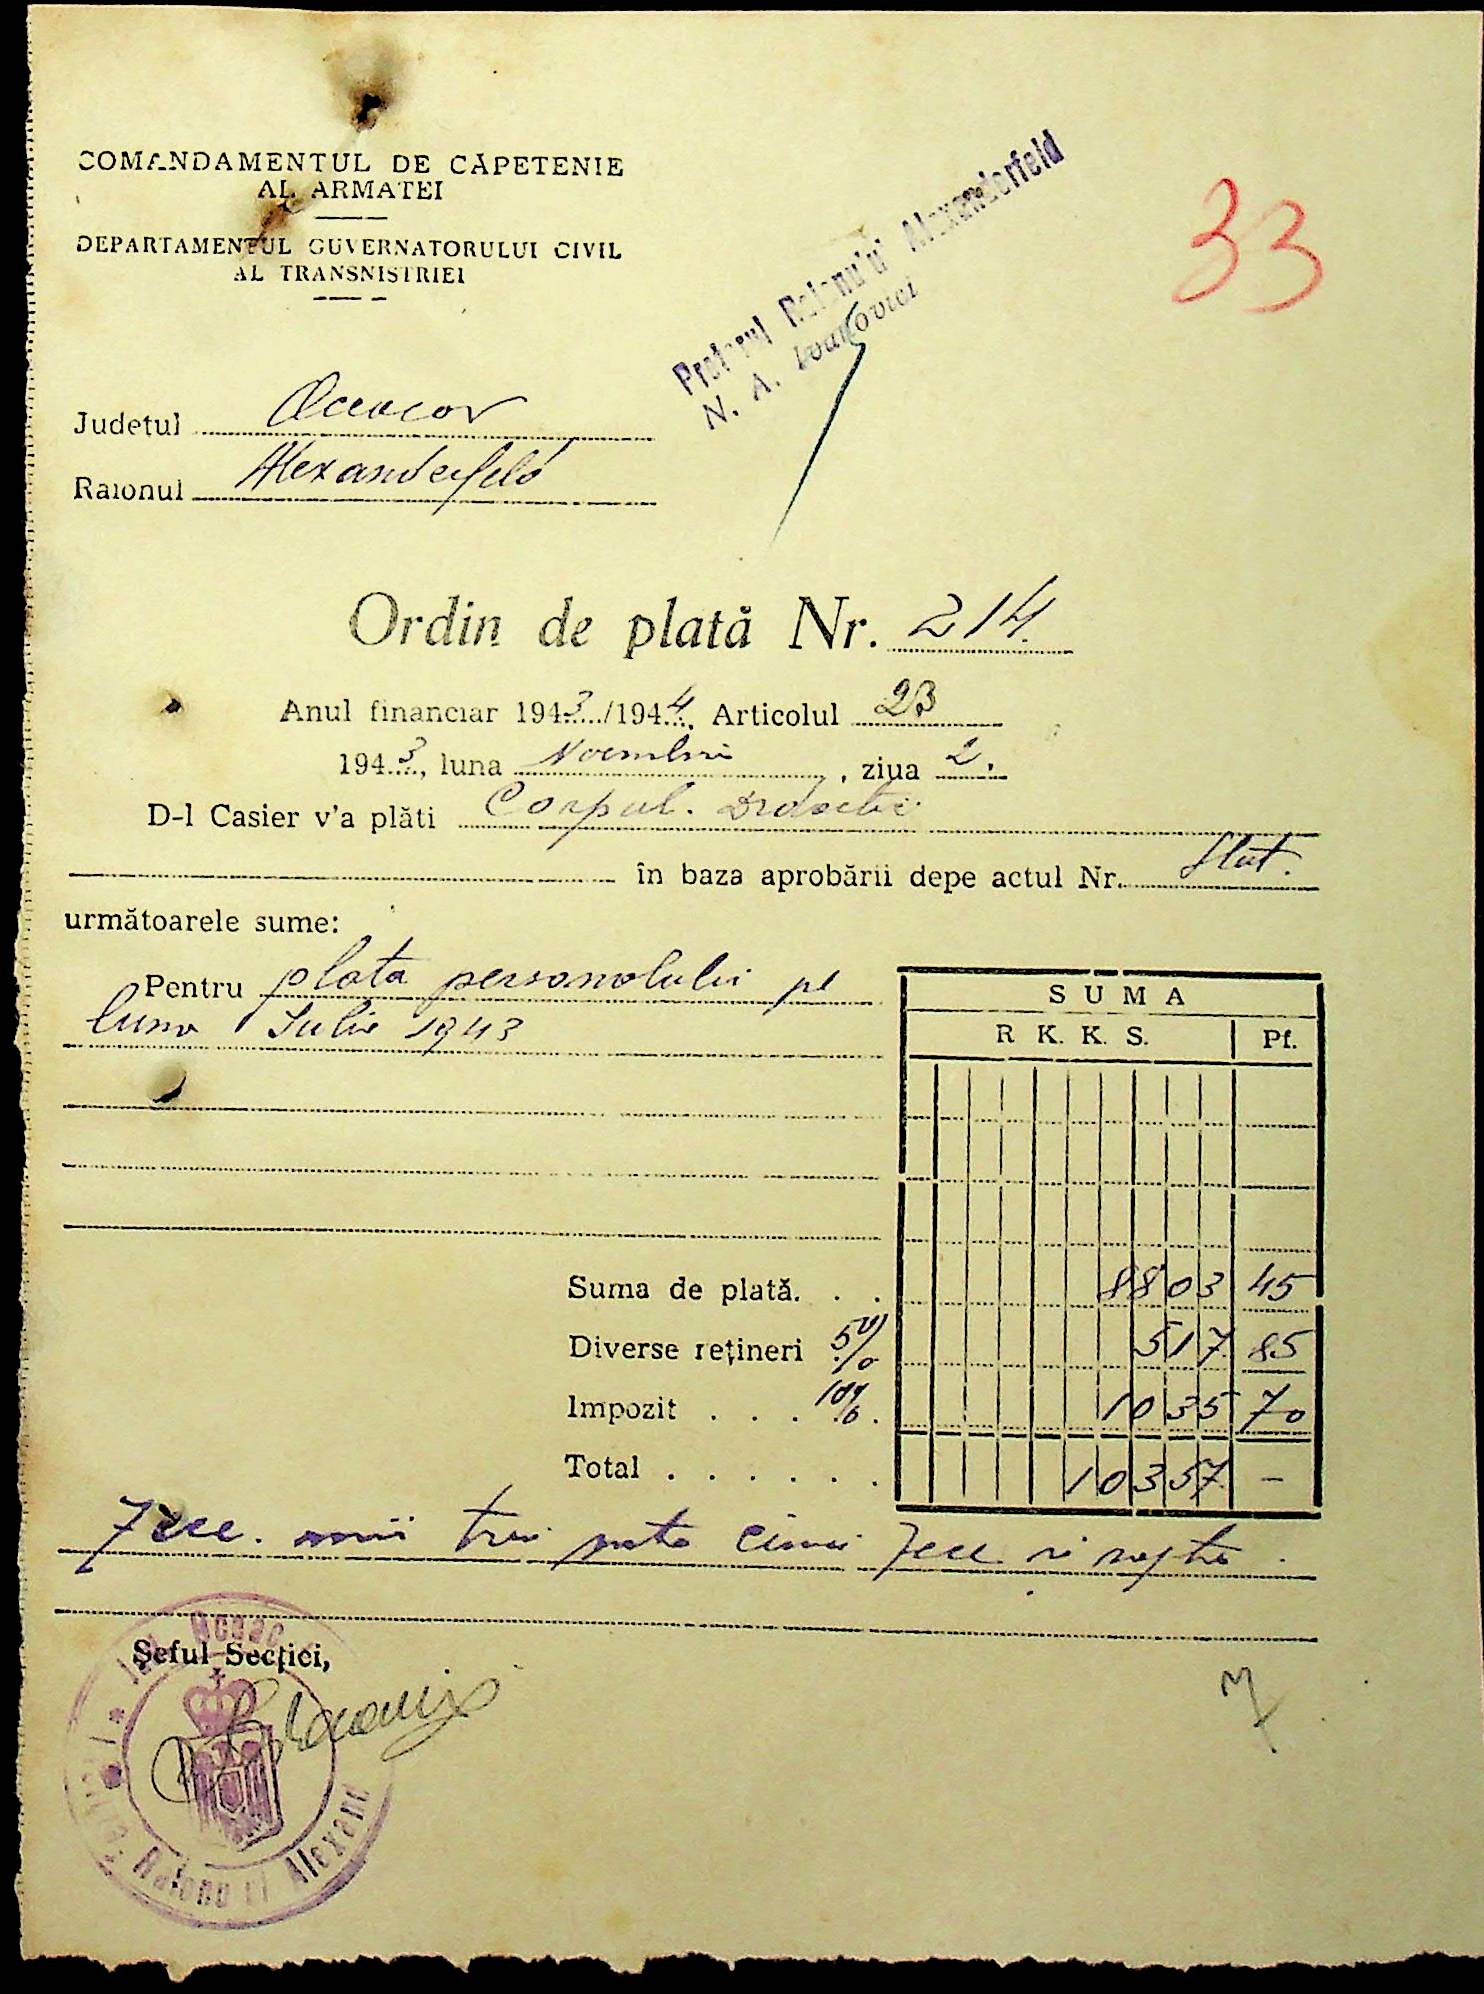 COMANDAMENTUL DE CĂPETENIE
AL ARMATEI
DEPARTAMENTUL GUVERNATORULUI CIVIL
AL TRANSNISTRIEI
Pretorul Raionului Alexanderfeld
N. A. Ivanovici
33
Județul Oceacov
Raionul Alexanderfeld
Ordin de plată Nr. 214.
Anul financiar 1943/1944. Articolul 23
1943, luna Noembrie, ziua 2.
D-l Casier v'a plăti Corpul. Didactic
în baza aprobării depe actul Nr. Stat.
următoarele sume:
Pentru plata personalului pe
luna Iulie 1943
SUMA
R K. K. S. Pf.
Suma de plată. . . 8803 45
Diverse rețineri 5% 517 85
Impozit . . . 10% . 1035 70
Total . . . . . . 10357 –
Zece. mii trei sute cinci zece si șapte.
Șeful Secției,
Raionul Alexand